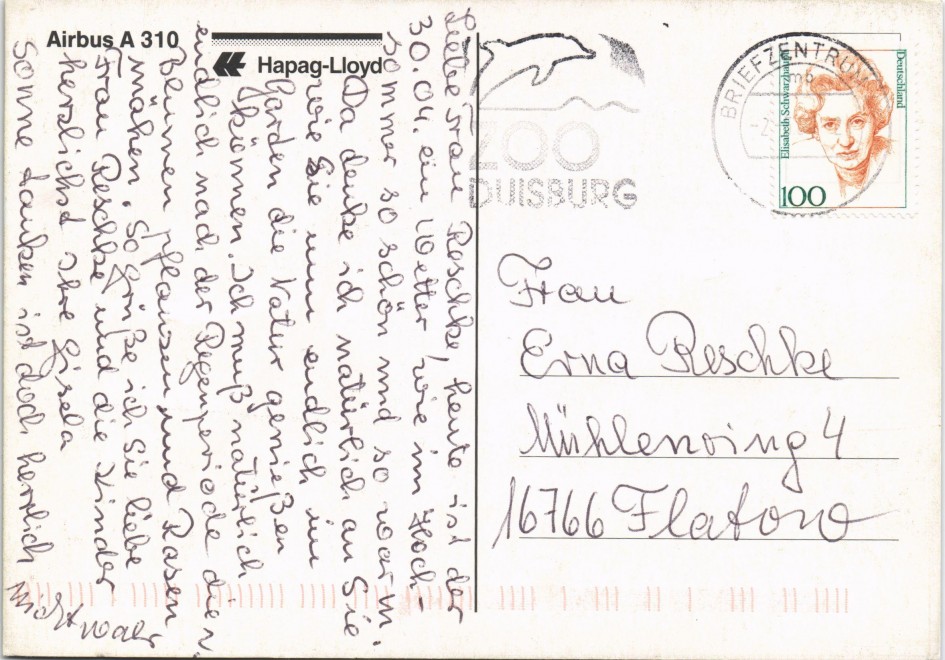 Airbus A 310
Hapag-Lloyd
Liebe Frau Reschke, heute ist der
30.04. ein Wetter, wie im Hoch-
sommer so schön und so warm.
Da denke ich natürlich an Sie
wie Sie nun endlich im
Garden die Natur genießen
können. Ich muß natürlich
endlich nach der Regenperiode die
Blumen pflanzen und Rasen
mähen. So grüße ich Sie liebe
Frau Reschke und die Kinder
herzlichst Ihre Gisela
Sonne tanken ist doch herrlich
nicht wahr
ZOO
DUISBURG
BRIEFZENTRUM
Deutschland
Elisabeth Schwarzhaupt
100
Frau
Erna Reschke
Mühlenring 4
16766 Flatow